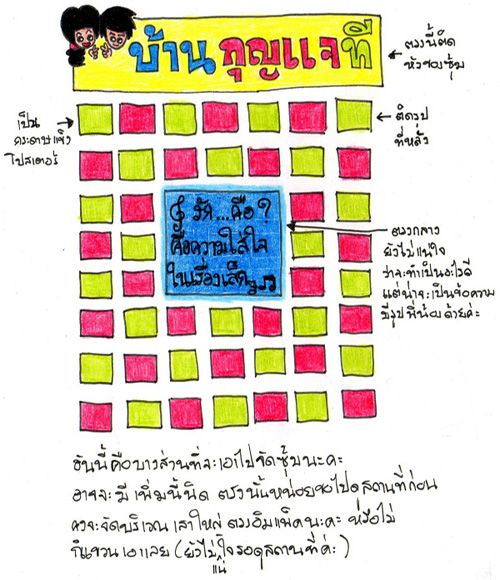 บ้านกุญแจที
ตรงนี้ติด
หัวของซุ้ม
เป็น
กระดาษแข็ง
โปสเตอร์
ติดรูป
ทีหลัง
รัก...คือ ?
คือความใส่ใจ
ในเรื่องเล็กๆ
ตรงกลาง
ยังไม่แน่ใจ
ว่าจะทำเป็นอะไรดี
แต่น่าจะเป็นข้อความ
มีรูปพี่น้องด้วยค่ะ
อันนี้คือบางส่วนที่จะเอาไปจัดซุ้มนะคะ
อาจจะมีเพิ่มนี้นิด ตรงนั้นหน่อยขอไปดูสถานที่ก่อน
ควจะจัดบริเวณเสาใหญ่ ตรงอิมแพ็คนะคะ หรือไม่
ก็แขวนเอาเลย (ยังไม่แน่ใจรอดูสถานที่ค่ะ)